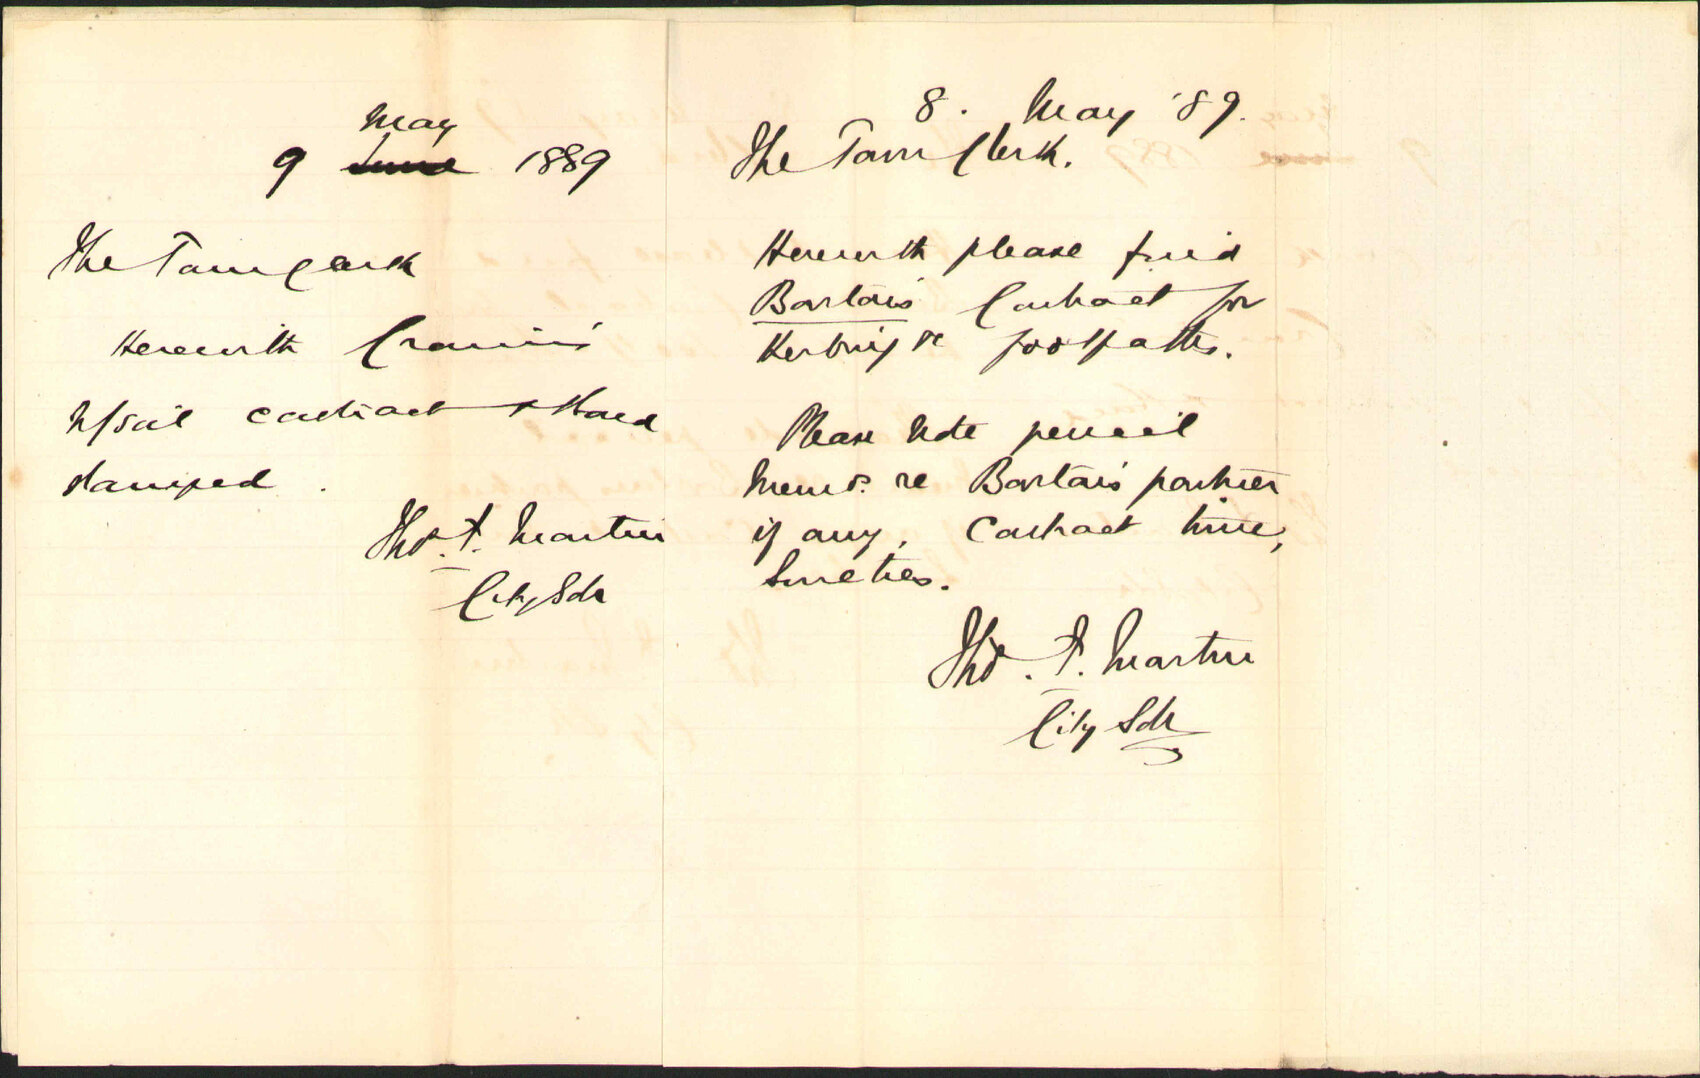 May
9 June 1889
The Town Clerk
Herewith
contract &
stamped.
Thos. F. Martin
City Sdr
8. May '89.
The Town Clerk.
Herewith please find
Barton's Contract for
Kerbing &c footpaths.
Please note pencil
memos. re Barton's partner
if any, Contract time,
Sureties.
Thos. F. Martin
City Sdr